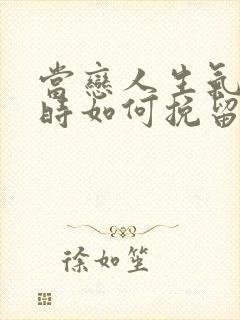 當戀人生氣
時如何挽留
徐如笙